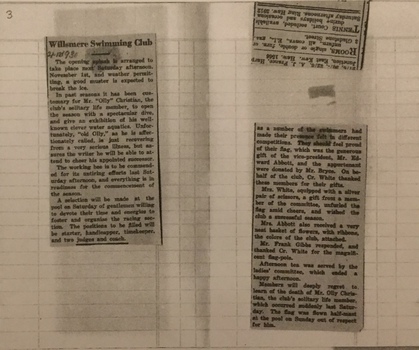 3
Willemere Swimming Club
The opening splash is arranged to
take place next Saturday afternoon,
November 1st, and weather permit-
ting, a good muster is expected to
break the ice.
In past seasons it has been cus-
tomary for Mr. "Olly" Christian, the
club's solitary life member, to open
the season with a spectacular dive,
and give an exhibition of his well-
known clever water antics. Unfor-
tunately, "old Olly," as he is affec-
tionately called, is just recovering
from a very serious illness, but as-
sures the writer he will be able to at-
tend to cheer his appointed successor.
The working bee is to be commend-
ed for its untiring efforts last Sat-
urday afternoon, and everything is in
readiness for the commencement of
the season.
A selection will be made at the
pool on Saturday of gentlemen willing
to devote their time and energies to
foster and organise the racing sec-
tion. The positions to be filled will
be starter, handicapper, timekeeper,
and two judges and coach.
As a number of the swimmers had
made their presence felt in different
competitions. They should feel proud
of their flag, which was the generous
gift of the vice-president, Mr. Ed-
ward Abbott, and the appurtenances
were donated by Mr. Bryne. On be-
half of the club, Cr. White thanked
these members for their gifts.
Mrs. White, equipped with a silver
pair of scissors, a gift from a mem-
ber of the committee, unfurled the
flag amid cheers, and wished the
club a successful season.
Mrs. Abbott also received a very
neat basket of flowers, with ribbons,
the colors of the club, attached.
Mr. Frank Gibbs responded, and
thanked Cr. White for the magnifi-
cent flag-pole.
Afternoon tea was served by the
ladies' committee, which ended a
happy afternoon.
Members will deeply regret to
learn of the death of Mr. Olly Chris-
tian, the club's solitary life member,
which occurred suddenly last Satur-
day. The flag was flown half-mast
at the pool on Sunday out of respect
for him.